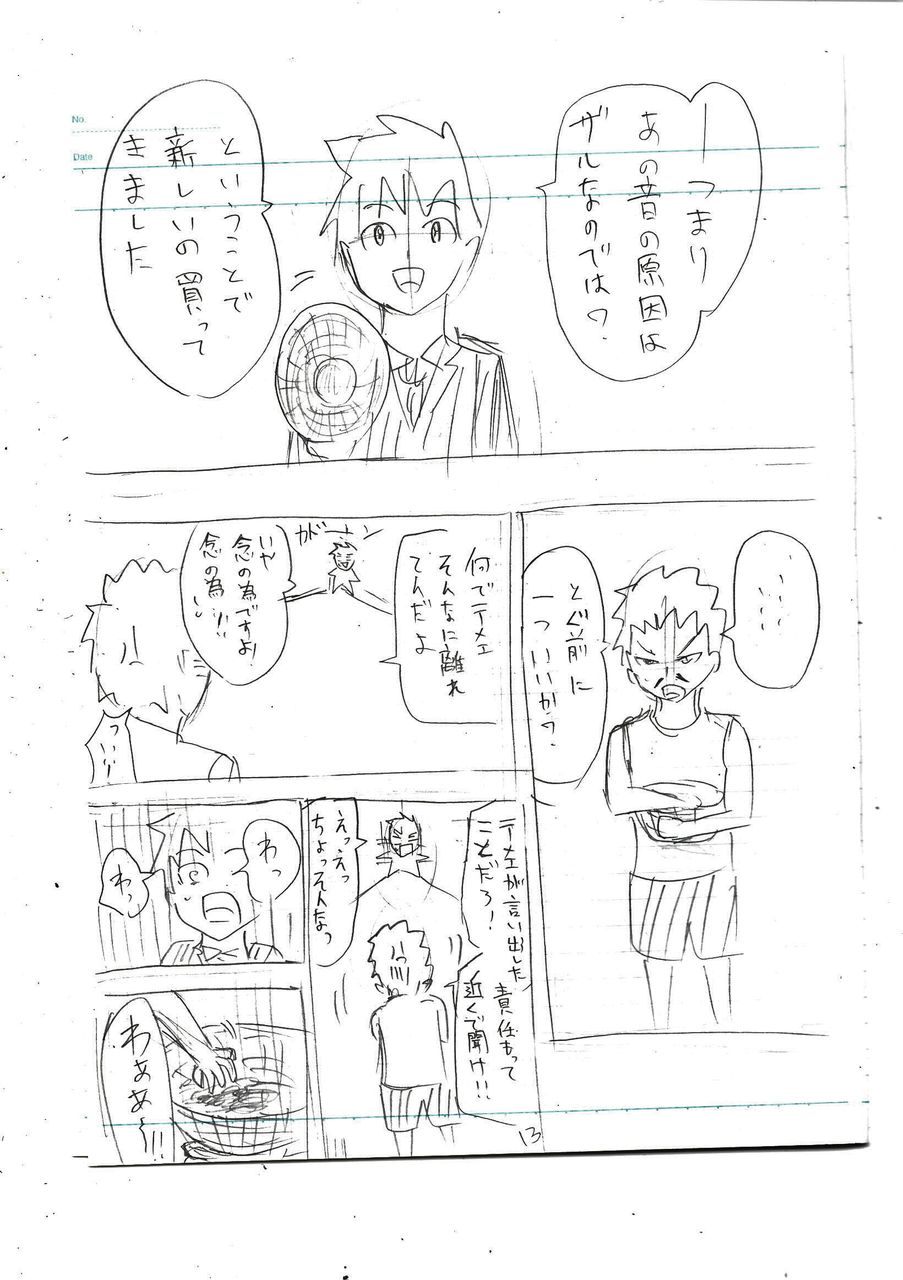 No.
Date
ーつまり
あの音の原因は
ザルなのでは?
ということで
新しいの買って
きました
‥‥‥
とぐ前に
一ついいか?
何でテメェ
そんなに離れ
てんだよ
いや
念の為ですよ!
念の為!!
テメェが言い出した
ことだろ!
責任もって
近くで聞け!!
えっえっ
ちょっそんなっ
わっ
わっ
わああ~!!
13